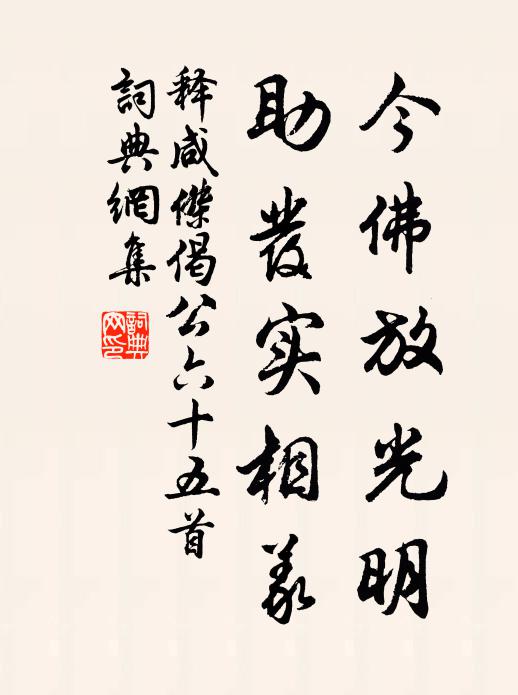 今佛放光明
助發实相義
释咸傑偈公六十五首
詞典網集
詞典網印